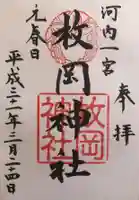 奉拝
河内一宮
枚岡神社
枚岡神社
元春日
平成三十一年三月二十四日